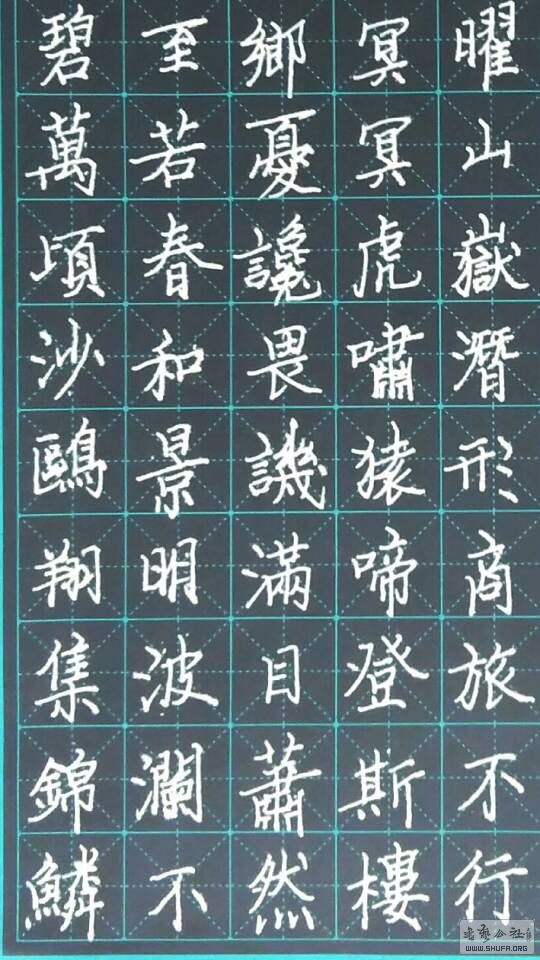 曜山嶽潛形商旅不行
冥冥虎嘯猿啼登斯樓
鄉憂讒畏譏滿目蕭然
至若春和景明波瀾不
碧萬頃沙鷗翔集錦鱗
WWW.SHUFA.ORG